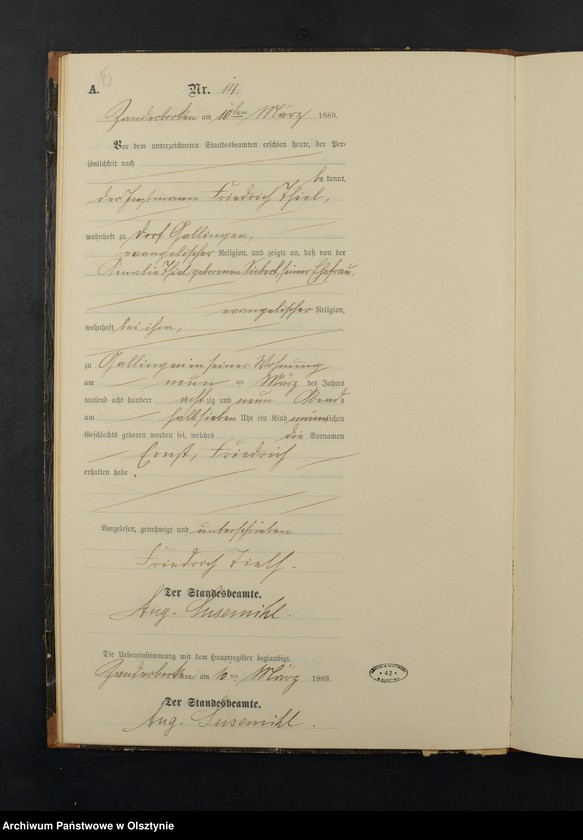 A.
Nr. 14.
am 10ten März 1889.
Vor dem unterzeichneten Standesbeamten erschien heute, der Per-
sönlichkeit nach
be kannt,
der Instmann Friedrich Thiel,
wohnhaft zu Dorf Gallingen,
evangelischer Religion, und zeigte an, daß von der
Amalie Thiel geborenen Siebert, seiner Ehefrau,
evangelischer Religion,
wohnhaft bei ihm,
zu Gallingen in seiner Wohnung
am neun ten März des Jahres
tausend acht hundert acht zig und neun Abends
um halb sieben Uhr ein Kind männlichen
Geschlechts geboren worden sei, welches die Vornamen
Ernst, Friedrich
erhalten habe.
Vorgelesen, genehmigt und unterschrieben
Friedrich
Der Standesbeamte.
Aug. Susemihl.
Die Uebereinstimmung mit dem Hauptregister beglaubigt.
am 10ten März 1889.
Der Standesbeamte.
Aug. Susemihl.
42
Archiwum Państwowe w Olsztynie